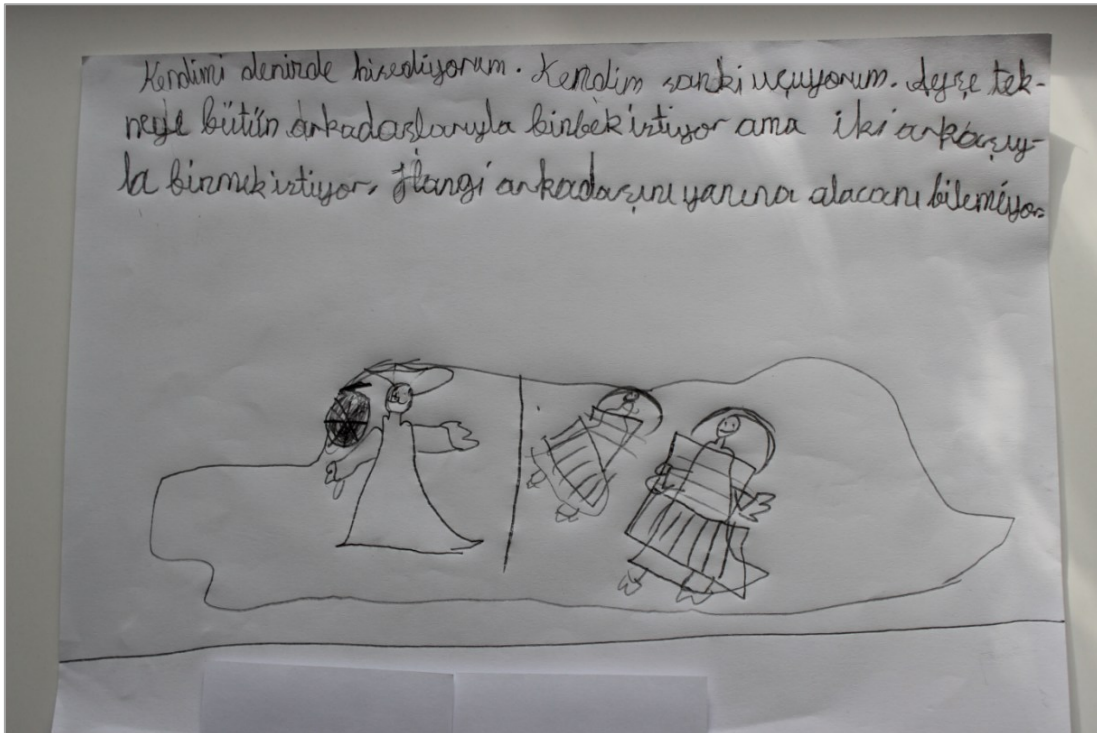 Kendimi denizde hisediyorum. Kendim sanki uçuyorum. Ayşe tek-
neye bütün arkadaşlarıyla binbek istiyor ama iki arkaşıy-
la binmek istiyor. Hangi arkadaşını yanına alacanı bilemiyor.